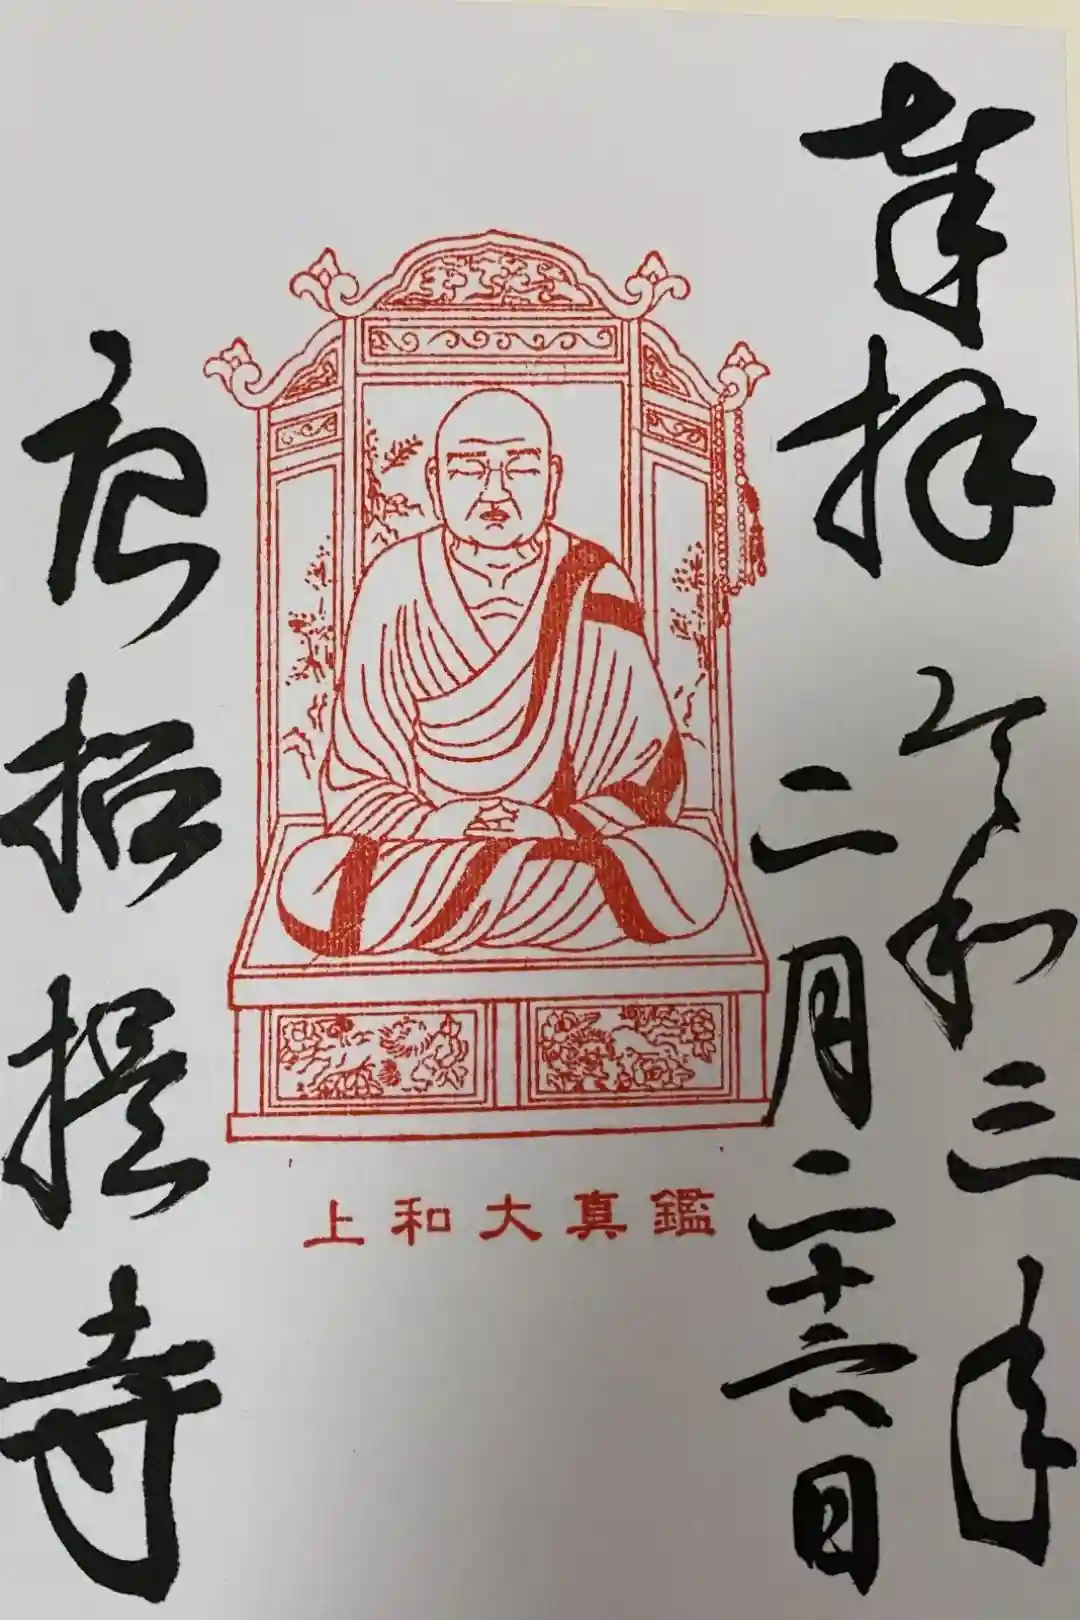 奉拝
令和三年
二月二十六日
鑑真大和上
唐招提寺